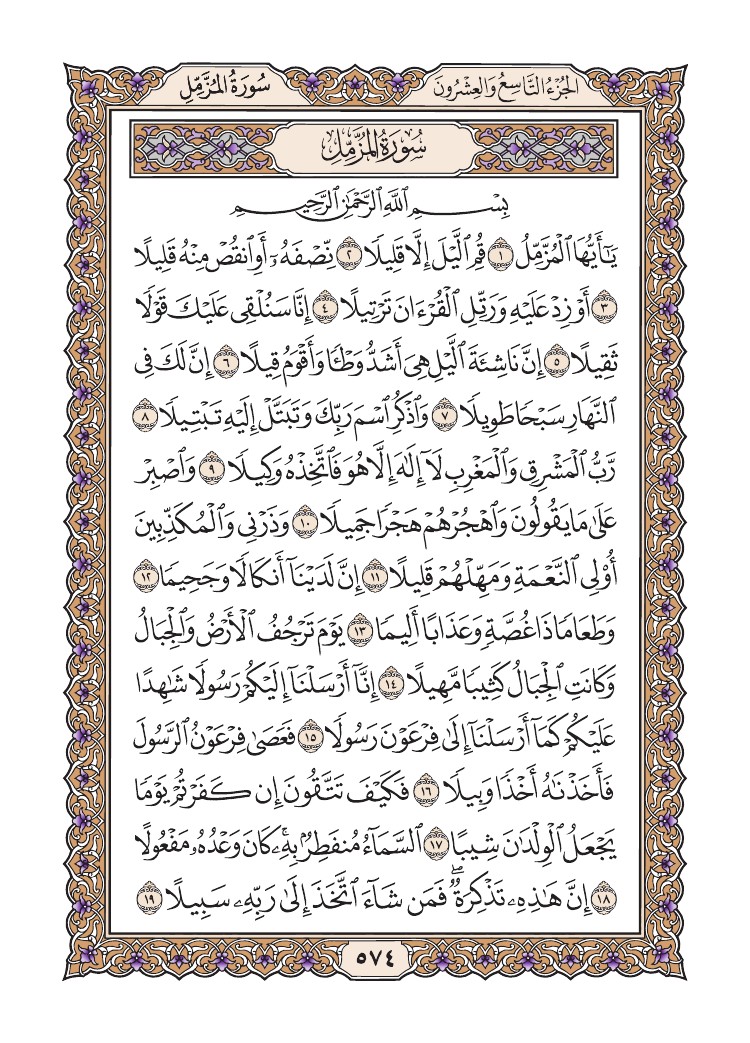 الجزء التاسع والعشرون
سورة المزمل
سُورَةُ المُزَّمِّلِ
بِسْمِ ٱللَّهِ ٱلرَّحْمَٰنِ ٱلرَّحِيمِ
يَٰٓأَيُّهَا ٱلْمُزَّمِّلُ ١ قُمِ ٱلَّيْلَ إِلَّا قَلِيلًا ٢ نِّصْفَهُۥٓ أَوِ ٱنقُصْ مِنْهُ قَلِيلًا
٣ أَوْ زِدْ عَلَيْهِ وَرَتِّلِ ٱلْقُرْءَانَ تَرْتِيلًا ٤ إِنَّا سَنُلْقِى عَلَيْكَ قَوْلًا
ثَقِيلًا ٥ إِنَّ نَاشِئَةَ ٱلَّيْلِ هِىَ أَشَدُّ وَطْـًٔا وَأَقْوَمُ قِيلًا ٦ إِنَّ لَكَ فِى
ٱلنَّهَارِ سَبْحًا طَوِيلًا ٧ وَٱذْكُرِ ٱسْمَ رَبِّكَ وَتَبَتَّلْ إِلَيْهِ تَبْتِيلًا ٨
رَّبُّ ٱلْمَشْرِقِ وَٱلْمَغْرِبِ لَآ إِلَٰهَ إِلَّا هُوَ فَٱتَّخِذْهُ وَكِيلًا ٩ وَٱصْبِرْ
عَلَىٰ مَا يَقُولُونَ وَٱهْجُرْهُمْ هَجْرًا جَمِيلًا ١٠ وَذَرْنِى وَٱلْمُكَذِّبِينَ
أُو۟لِى ٱلنَّعْمَةِ وَمَهِّلْهُمْ قَلِيلًا ١١ إِنَّ لَدَيْنَآ أَنكَالًا وَجَحِيمًا ١٢
وَطَعَامًا ذَا غُصَّةٍ وَعَذَابًا أَلِيمًا ١٣ يَوْمَ تَرْجُفُ ٱلْأَرْضُ وَٱلْجِبَالُ
وَكَانَتِ ٱلْجِبَالُ كَثِيبًا مَّهِيلًا ١٤ إِنَّآ أَرْسَلْنَآ إِلَيْكُمْ رَسُولًا شَٰهِدًا
عَلَيْكُمْ كَمَآ أَرْسَلْنَآ إِلَىٰ فِرْعَوْنَ رَسُولًا ١٥ فَعَصَىٰ فِرْعَوْنُ ٱلرَّسُولَ
فَأَخَذْنَٰهُ أَخْذًا وَبِيلًا ١٦ فَكَيْفَ تَتَّقُونَ إِن كَفَرْتُمْ يَوْمًا
يَجْعَلُ ٱلْوِلْدَٰنَ شِيبًا ١٧ ٱلسَّمَآءُ مُنفَطِرٌۢ بِهِۦ ۚ كَانَ وَعْدُهُۥ مَفْعُولًا
١٨ إِنَّ هَٰذِهِۦ تَذْكِرَةٌ ۖ فَمَن شَآءَ ٱتَّخَذَ إِلَىٰ رَبِّهِۦ سَبِيلًا ١٩
٥٧٤